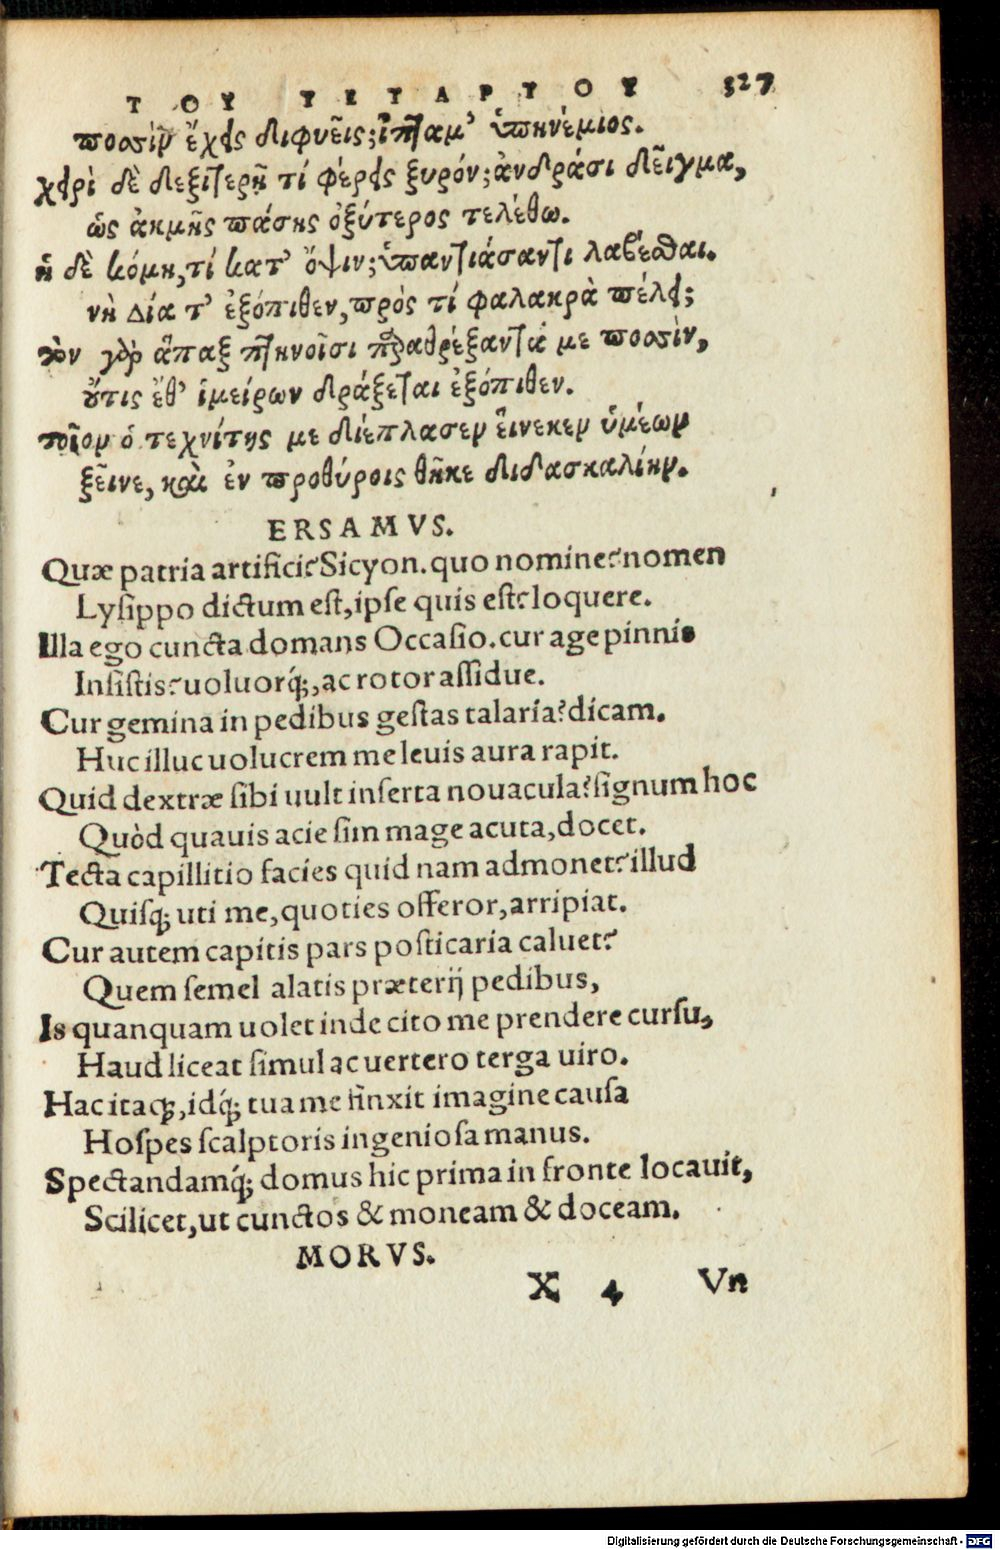 ΤΟΥ ΤΕΤΑΡΤΟΥ 327
ποσσὶν ἔχεις διφυεῖς; ἵπταμ' ὑπηνέμιος.
χειρὶ δὲ δεξιτερῇ τί φέρεις ξυρόν; ἀνδράσι δεῖγμα,
ὡς ἀκμῆς πάσης ὀξύτερος τελέθω.
ἡ δὲ κόμη, τί κατ' ὄψιν; ὑπαντιάσαντι λαβέσθαι.
νὴ Δία τ' ἐξόπιθεν, πρὸς τί φαλακρὰ πέλει;
τὸν γὰρ ἅπαξ πτηνοῖσι παραθρέξαντά με ποσσὶν,
οὔτις ἔθ' ἱμείρων δράξεται ἐξόπιθεν.
τοῖον ὁ τεχνίτης με διέπλασεν εἵνεκεν ὑμέων
ξεῖνε, καὶ ἐν προθύροις θῆκε διδασκαλίην.
ERSAMVS.
Quæ patria artifici? Sicyon. quo nomine? nomen
Lysippo dictum est, ipse quis est? loquere.
Illa ego cuncta domans Occasio. cur age pinnis
Insistis? uoluorq́;, ac rotor assidue.
Cur gemina in pedibus gestas talaria? dicam.
Huc illuc uolucrem me leuis aura rapit.
Quid dextræ sibi uult inserta nouacula? signum hoc
Quòd quauis acie sim mage acuta, docet.
Tecta capillitio facies quid nam admonet? illud
Quisq; uti me, quoties offeror, arripiat.
Cur autem capitis pars posticaria caluet?
Quem semel alatis præterij pedibus,
Is quanquam uolet inde cito me prendere cursu,
Haud liceat simul ac uertero terga uiro.
Hac itaq;, idq́; tua me finxit imagine causa
Hospes scalptoris ingeniosa manus.
Spectandamq́; domus hic prima in fronte locauit,
Scilicet, ut cunctos & moneam & doceam.
MORVS.
X 4 Vn
Digitalisierung gefördert durch die Deutsche Forschungsgemeinschaft - DFG